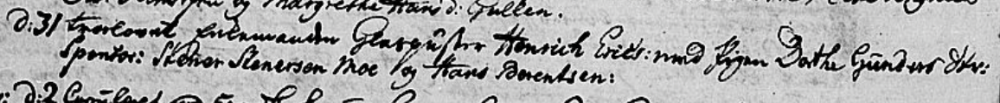 og Margrethe Hans d: Gullen.
d: 31 trolovet Enkemanden Glaspuster Henrich Erics: med Pigen Dorthe Gunders Dtr:
Sponsor: Stener Stenersen Moe og Hans Berentsen:
d: 2